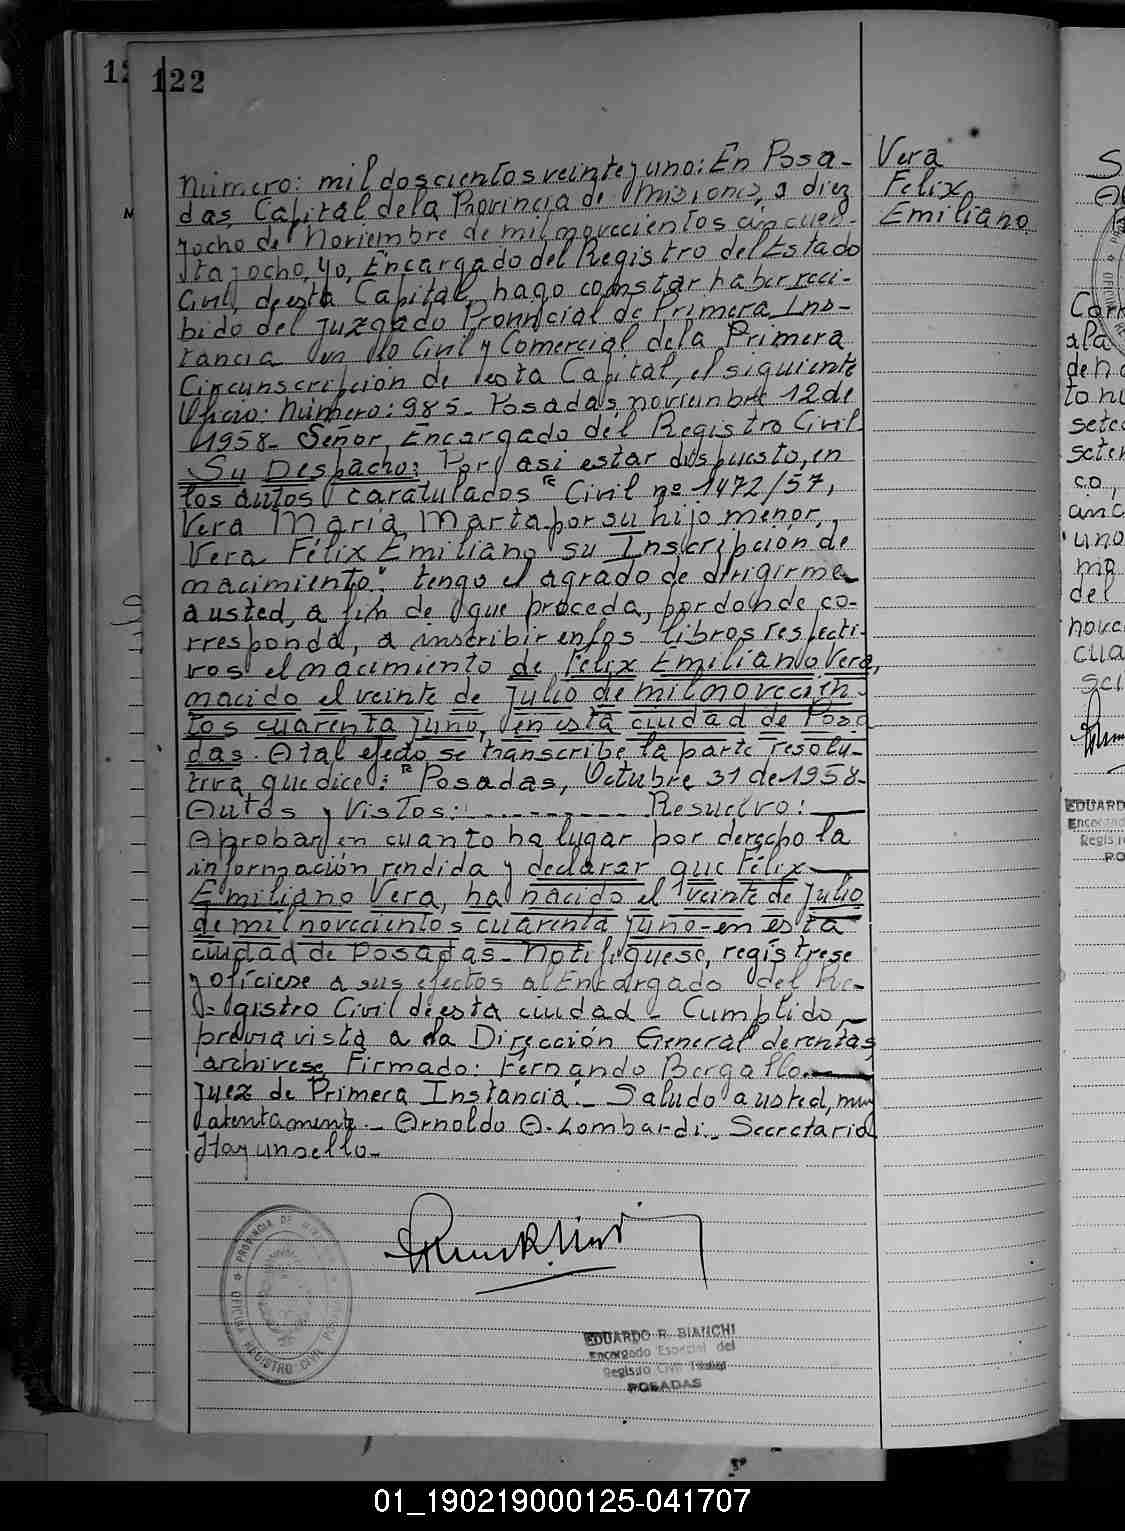 122
Número: mil doscientos veinte y uno: En Posa-
das, Capital de la Provincia de Misiones, a diez
y ocho de Noviembre de mil novecientos cincuen-
ta y ocho, yo, Encargado del Registro del Estado
Civil, de esta Capital, hago constar haber reci-
bido del Juzgado Provincial de Primera Ins-
tancia en lo Civil y Comercial de la Primera
Circunscripción de esta Capital, el siguiente
Oficio: Número: 985- Posadas, noviembre 12 de
1958- Señor Encargado del Registro Civil
Su Despacho: Por asi estar dispuesto, en
los autos caratulados "Civil nº 1472/57,
Vera María Marta por su hijo menor,
Vera Félix Emiliano su Inscripción de
nacimiento", tengo el agrado de dirigirme
a usted, a fin de que proceda, por donde co-
rresponda, a inscribir en los libros respecti-
vos el nacimiento de Félix Emiliano Vera,
nacido el veinte de Julio de mil novecien-
tos cuarenta y uno, en esta ciudad de Posa
das. A tal efecto se transcribe la parte resolu-
tiva que dice: "Posadas, Octubre 31 de 1958-
Autos y Vistos: ---------- Resuelvo:
Aprobar en cuanto ha lugar por derecho la
información rendida y declarar que Félix
Emiliano Vera, ha nacido el veinte de Julio
de mil novecientos cuarenta y uno- en esta
ciudad de Posadas- Notifíquese, regístrese
y ofíciese a sus efectos al Encargado del Re-
gistro Civil de esta ciudad - Cumplido,
previa vista a la Dirección General de rentas
archívese Firmado: Fernando Bergallo.
Juez de Primera Instancia".- Saludo a usted, muy
atentamente.- Arnoldo A. Lombardi- Secretario
Hay un sello-
Vera
Felix
Emiliano
PROVINCIA DE MISIONES
OFICINA REGISTRO CIVIL
EDUARDO R. BIANCHI
Encargado Especial del
Registro Civil
POSADAS
S
Corr
a la
de N
to n
sete
seten
co,
cinc
uno
mo
del
nove
cua
EDUARD
Encargad
Regist
PO
01_190219000125-041707